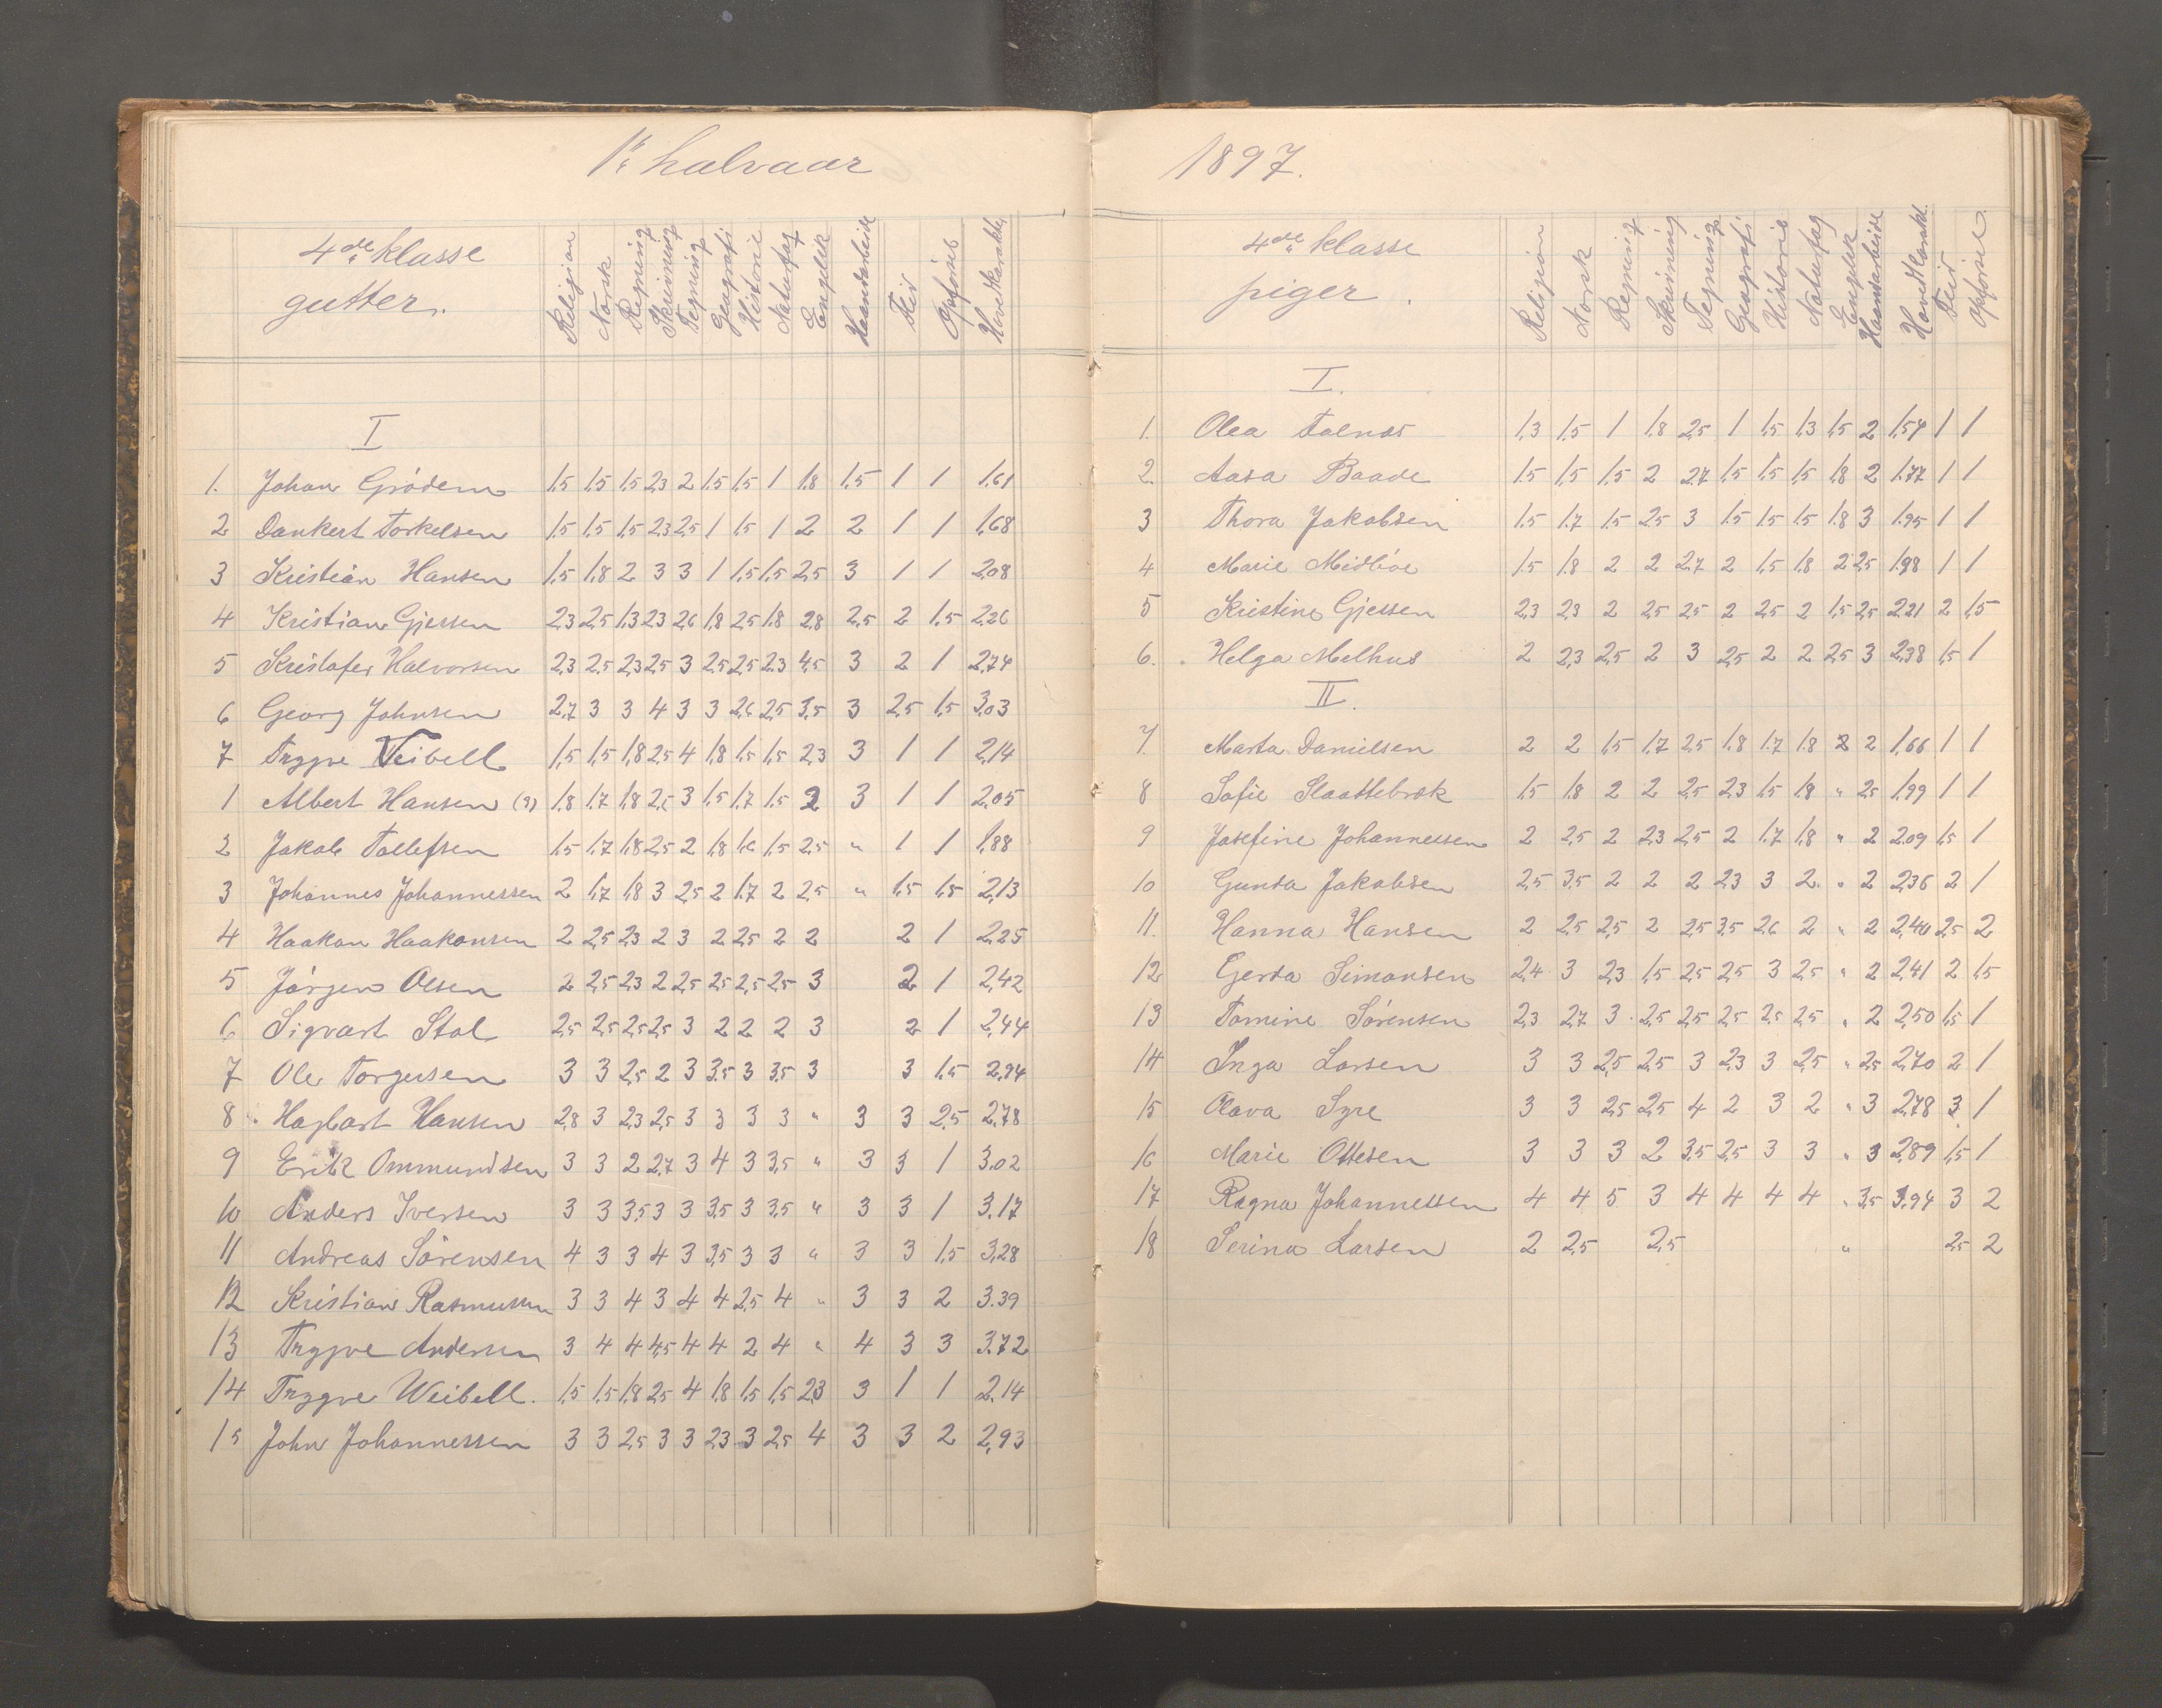 1ste halvaar
4de klasse
gutter.
Religion Norsk Regning Skrivning Tegning Geografi Historie Naturfag Engelsk Haandarbeide Flid Opførsel Hovedkarakter
I
1. Johan Grödem 1,5 1,5 1,5 2,3 2 1,5 1,5 1 1,8 1,5 1 1 1,61
2 Dankert Torkelsen 1,5 1,5 1,5 2,3 2,5 1 1,5 1 2 2 1 1 1,68
3 Kristian Hansen 1,5 1,8 2 3 3 1 1,5 1,5 2,5 3 1 1 2,08
4 Kristian Gjessen 2,3 2,5 1,3 2,3 2,6 1,8 2,5 1,8 2,8 2,5 2 1,5 2,26
5 Kristofer Halvorsen 2,3 2,5 2,3 2,5 3 2,5 2,5 2,3 4,5 3 2 1 2,74
6 Georg Johnsen 2,7 3 3 4 3 3 2,6 2,5 3,5 3 2,5 1,5 3,03
7 Trygve Veibell 1,5 1,5 1,8 2,5 4 1,8 1,5 1,5 2,3 3 1 1 2,14
1 Albert Hansen 1,8 1,7 1,8 2,5 3 1,5 1,7 1,5 2 3 1 1 2,05
2 Jakob Tollefsen 1,5 1,7 1,8 2,5 2 1,8 1,6 1,5 2,5 " 1 1 1,88
3 Johannes Johannessen 2 1,7 1,8 3 2,5 2 1,7 2 2,5 " 1,5 1,5 2,13
4 Haakon Haakonsen 2 2,5 2,3 2 3 2 2,5 2 2 2 1 2,25
5 Jörgen Olsen 2 2,5 2,3 2 2,5 2,5 2,5 2,5 3 2 1 2,42
6 Sigvart Stol 2,5 2,5 2,5 2,5 3 2 2 2 3 2 1 2,44
7 Ole Torgersen 3 3 2,5 2 3 3,5 3 3,5 3 3 1,5 2,94
8 Hagbart Hansen 2,8 3 2,3 2,5 3 3 3 3 " 3 3 2,5 2,78
9 Erik Ommundsen 3 3 2 2,7 3 4 3 3,5 " 3 3 1 3.02
10 Anders Iversen 3 3 3,5 3 3 3,5 3 3,5 " 3 3 1 3.17
11 Andreas Sörensen 4 3 3 4 3 3,5 3 3 " 3 3 1,5 3,28
12 Kristian Rasmussen 3 3 4 3 4 4 2,5 4 " 3 3 2 3.39
13 Trygve Andersen 3 4 4 4,5 4 4 2 4 " 4 3 3 3.72
14 Trygve Weibell. 1,5 1,5 1,8 2,5 4 1,8 1,5 1,5 2,3 3 1 1 2.14
15 John Johannessen 3 3 2,5 3 3 2,3 3 2,5 4 3 3 2 2,93
1897.
4de klasse
piger.
Religion Norsk Regning Skrivning Tegning Geografi Historie Naturfag Engelsk Haandarbeide Hovedkarakt. Flid Opførsel
I.
1. Olea Tolnes 1,3 1,5 1 1,8 2,5 1 1,5 1,3 1,5 2 1,54 1 1
2. Aasa Baade 1,5 1,5 1,5 2 2,7 1,5 1,5 1,5 1,8 2 1.77 1 1
3 Thora Jakobsen 1,5 1,7 1,5 2,5 3 1,5 1,5 1,5 1,8 3 1.95 1 1
4 Marie Midböe 1,5 1,8 2 2 2,7 2 1,5 1,8 2 2,5 1.98 1 1
5 Kristine Gjessen 2,3 2,3 2 2,5 2,5 2 2,5 2 1,5 2,5 2,21 2 1,5
6. Helga Melhus 2 2,3 2,5 2 3 2,5 2 2 2,5 3 2,38 1,5 1
II.
7. Marta Danielsen 2 2 1,5 1,7 2,5 1,8 1,7 1,8 2 2 1,66 1 1
8 Sofie Slaattebrok 1,5 1,8 2 2 2,5 2,3 1,5 1,8 " 2,5 1,99 1 1
9 Josefine Johannessen 2 2,5 2 2,3 2,5 2 1,7 1,8 " 2 2,09 1,5 1
10 Gunda Jakobsen 2,5 3,5 2 2 2 2,3 3 2. " 2 2,36 2 1
11. Hanna Hansen 2 2,5 2,5 2 2,5 3,5 2,6 2 " 2 2,40 2,5 2
12 Gerda Simonsen 2,4 3 2,3 1,5 2,5 2,5 3 2,5 " 2 2,41 2 1,5
13 Tomine Sörensen 2,3 2,7 3 2,5 2,5 2,5 2,5 2,5 " 2 2,50 1,5 1
14 Inga Larsen 3 3 2,5 2,5 3 2,3 3 2,5 " 2,5 2,70 2 1
15 Olava Syre 3 3 2,5 2,5 4 2 3 2 " 3 2,78 3 1
16 Marie Ottesen 3 3 3 2 3,5 2,5 3 3 " 3 2,89 1,5 1
17 Ragna Johannessen 4 4 5 3 4 4 4 4 " 3,5 3,94 3 2
18 Serina Larsen 2 2,5 2,5 " 2,5 2